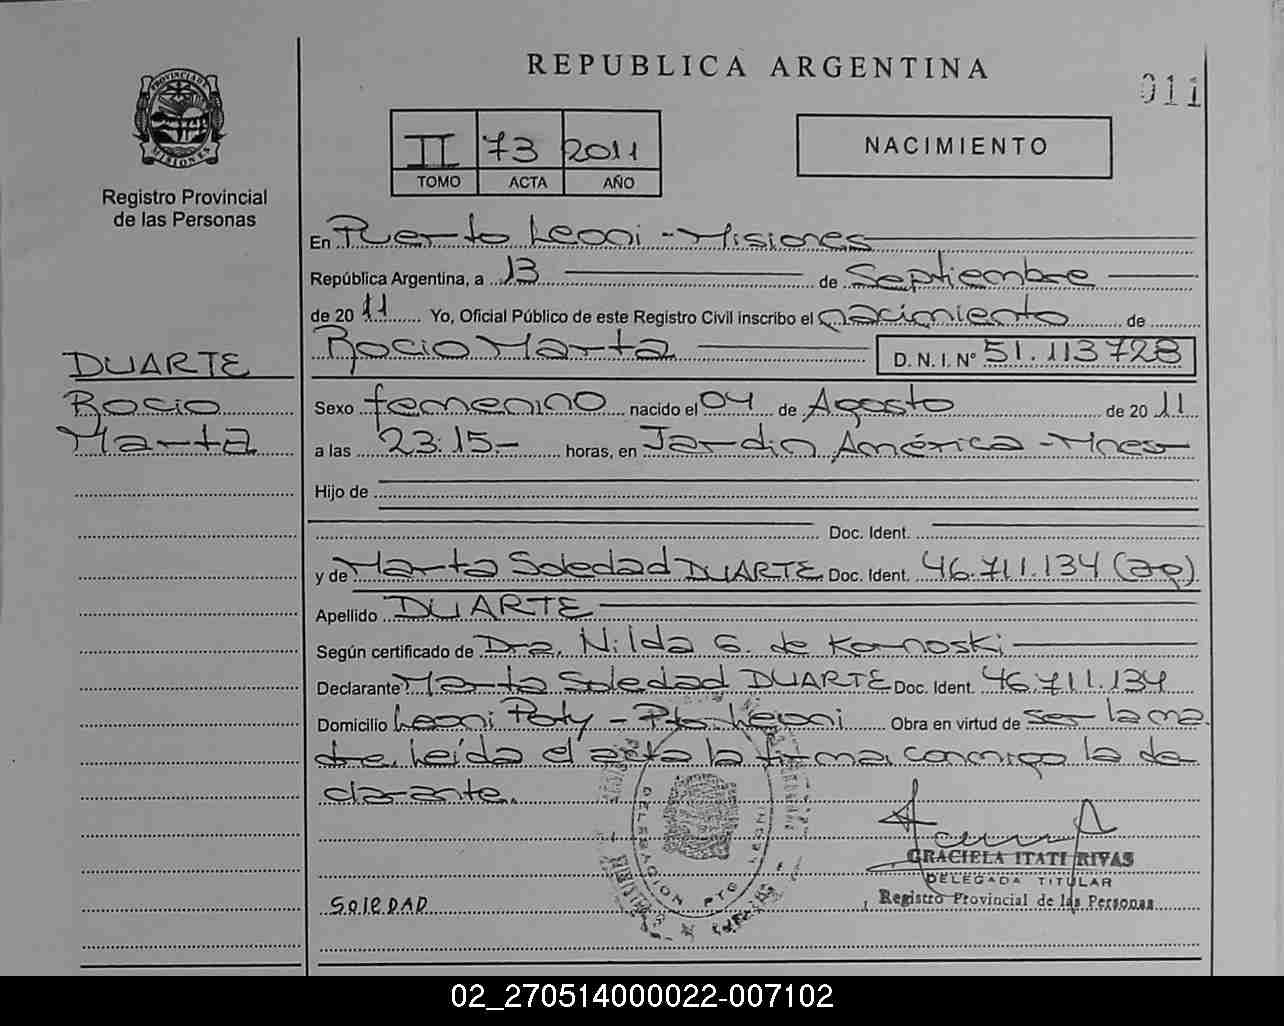 REPUBLICA ARGENTINA
011
PROVINCIA DE
MISIONES
Registro Provincial
de las Personas
II 73 2011
TOMO ACTA AÑO
NACIMIENTO
En Puerto Leoni - Misiones
República Argentina, a 13 de Septiembre
de 2011 Yo, Oficial Público de este Registro Civil inscribo el nacimiento de
Rocio Marta D. N. I. N° 51.113728
DUARTE
Rocio
Marta
Sexo femenino nacido el 04 de Agosto de 2011
a las 23:15.- horas, en Jardin América - Mnes
Hijo de
Doc. Ident.
y de Marta Soledad DUARTE Doc. Ident. 46.711.134 (ap)
Apellido DUARTE
Según certificado de Dra. Nilda G. de Kornoski
Declarante Marta Soledad DUARTE Doc. Ident. 46.711.134
Domicilio Leoni Poty - Pto. Leoni Obra en virtud de ser la ma
dre. Leída el acta la firma conmigo la de
clarante.
DELEGACION PTO LEONI
GRACIELA ITATI RIVAS
DELEGADA TITULAR
Registro Provincial de las Personas
SOLEDAD
02_270514000022-007102